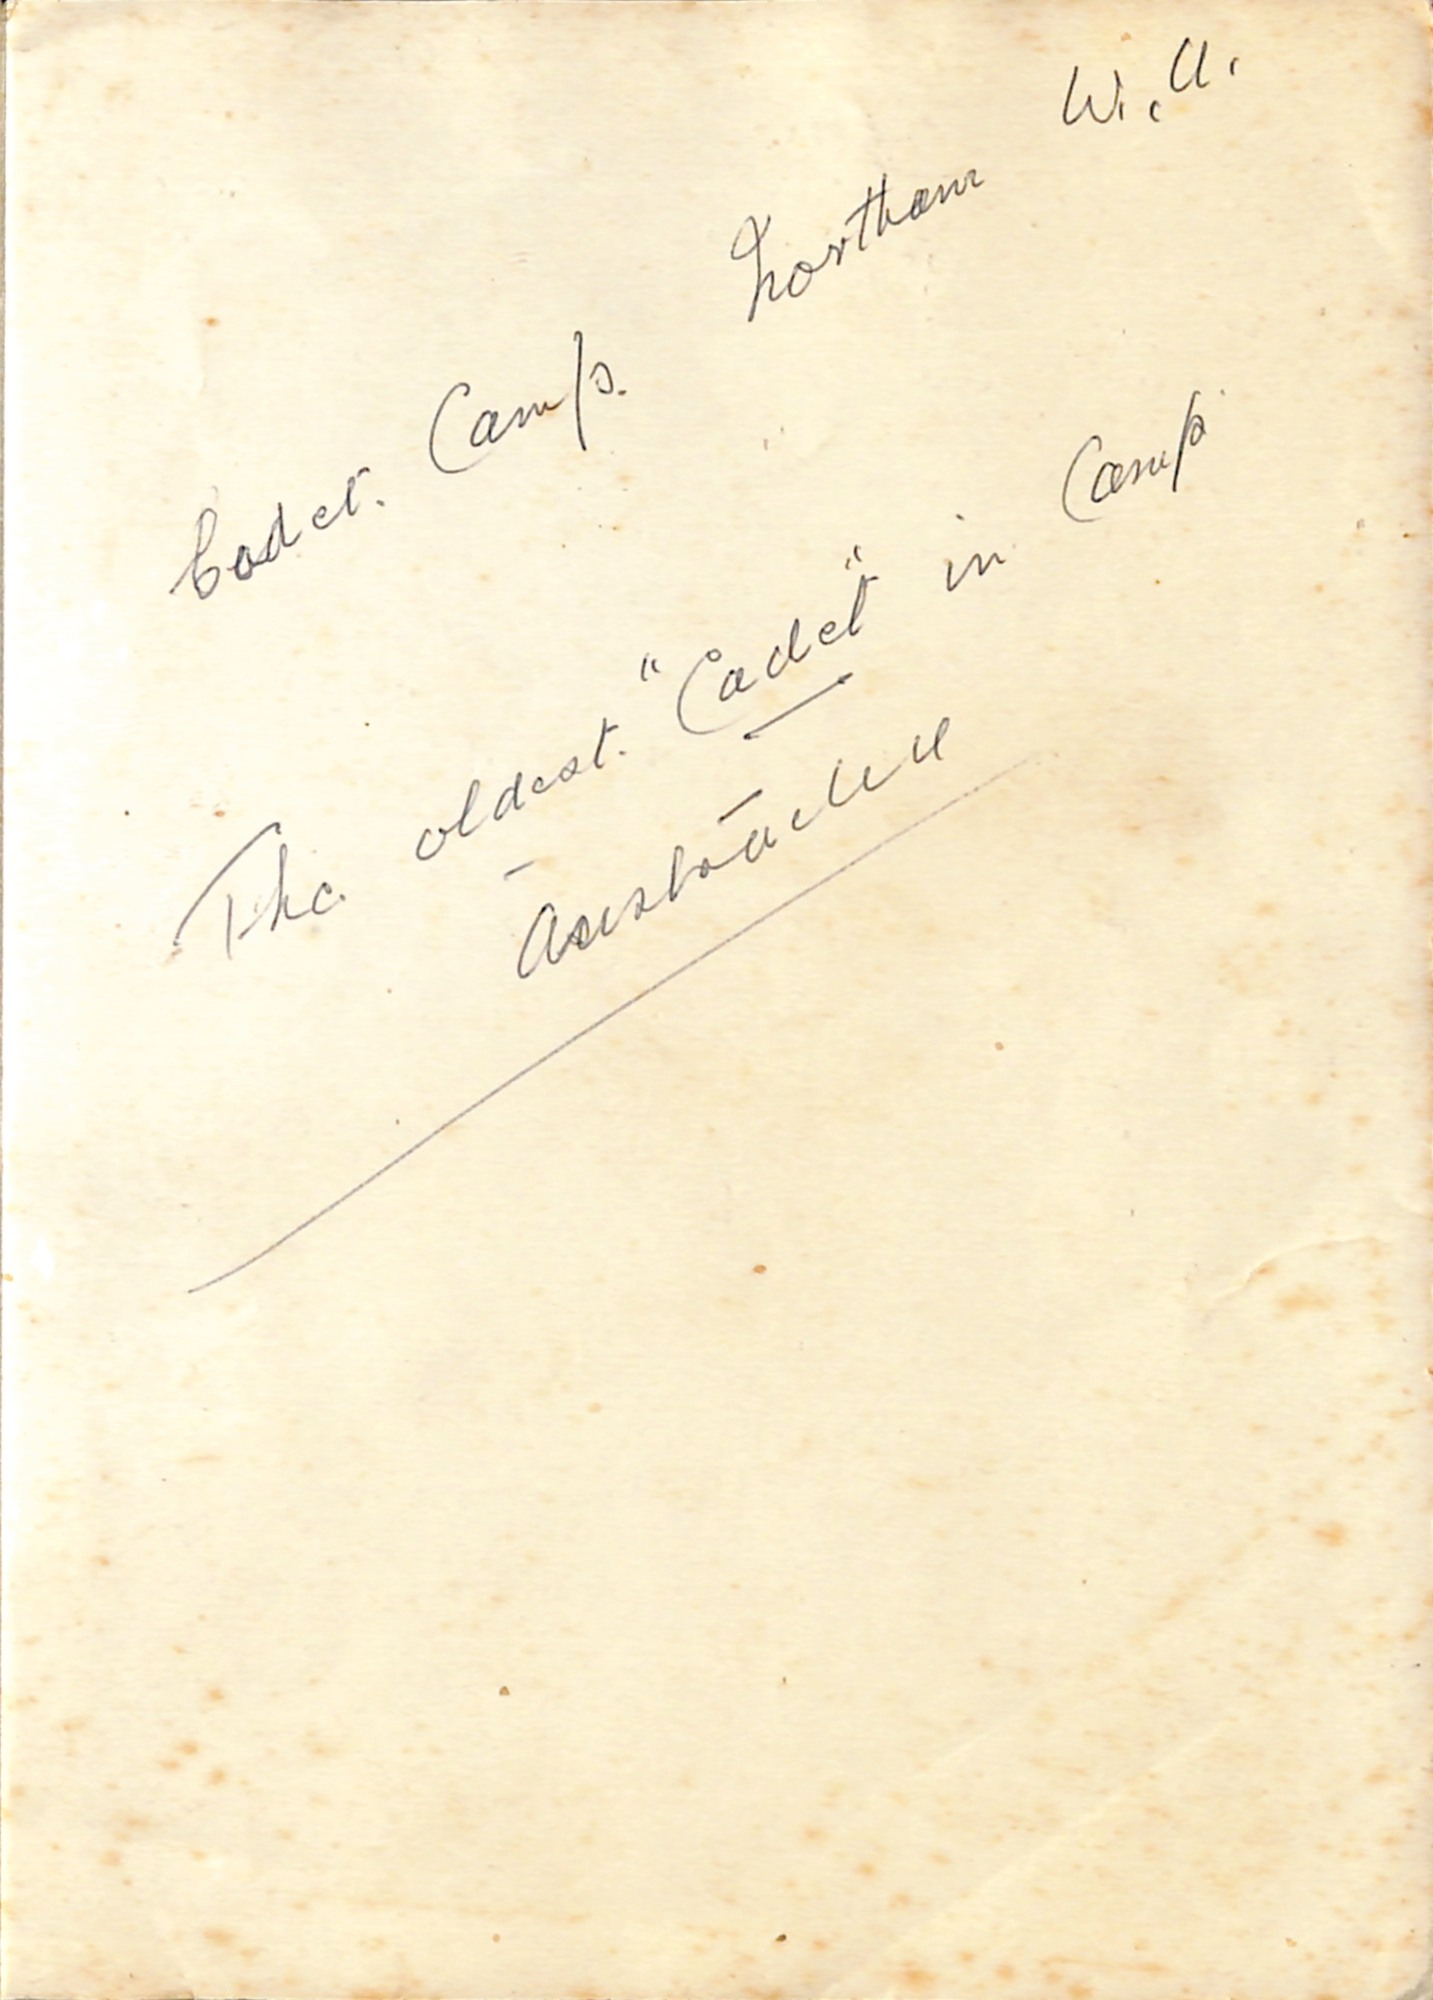 Cadet. Camp. Northam W.A.
The oldest. "Cadet" in Camp